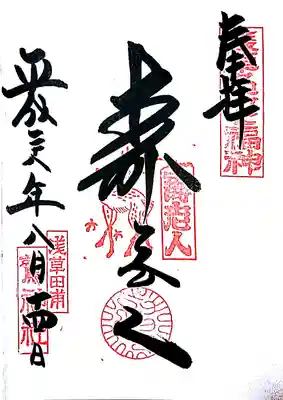 奉拝
浅草名所七福神
寿老人
壽老人
平成二八年八月十四日
浅草田甫
鷲神社